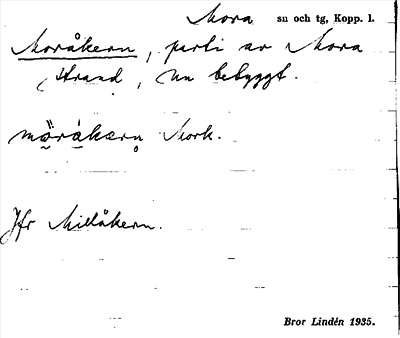 Mora sn och tg, Kopp. l.
Moråkern, parti av Mora
Strand, nu bebyggt.
möråkærn Mork.
Jfr Millåkern.
Bror Lindén 1935.